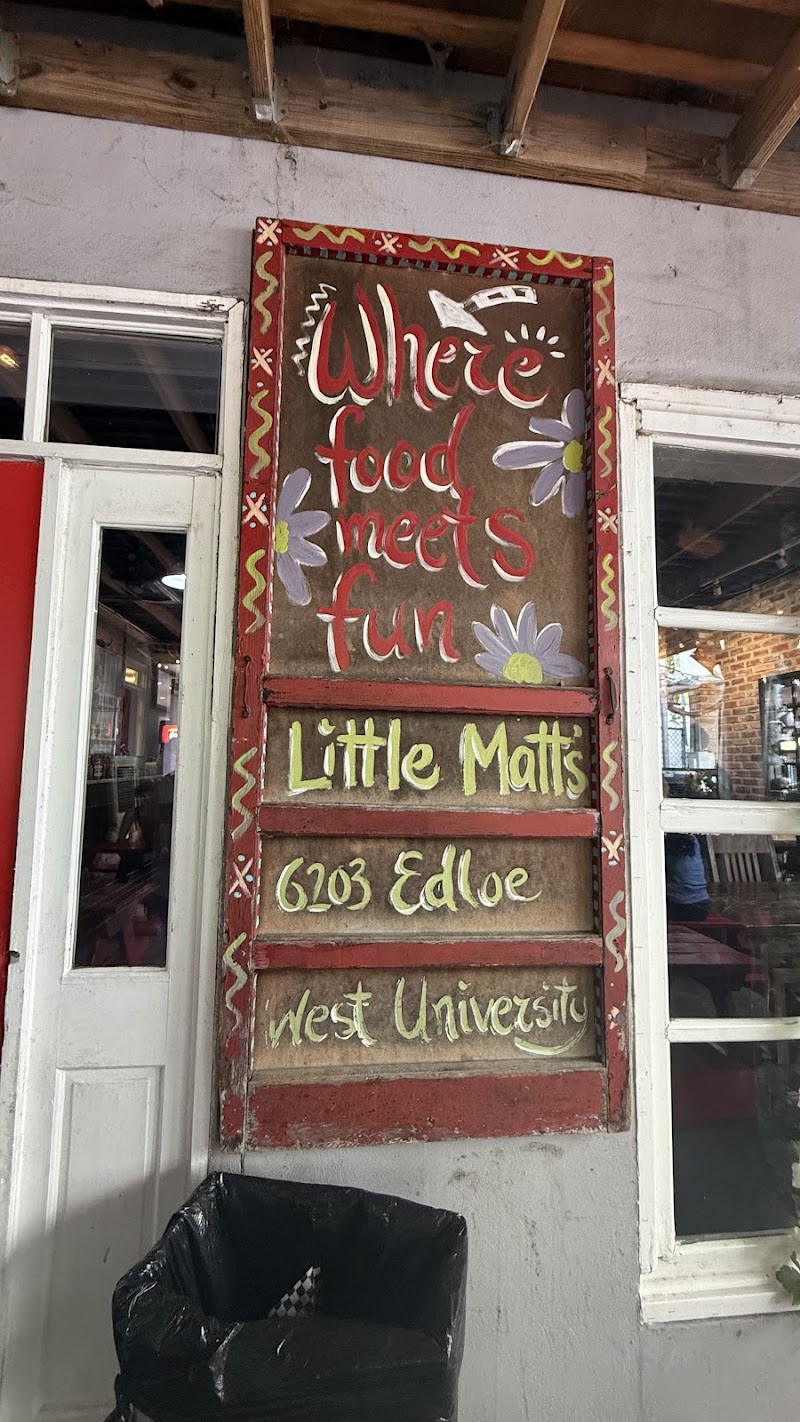 Where
food
meets
fun
Little Matt's
6203 Edloe
West University